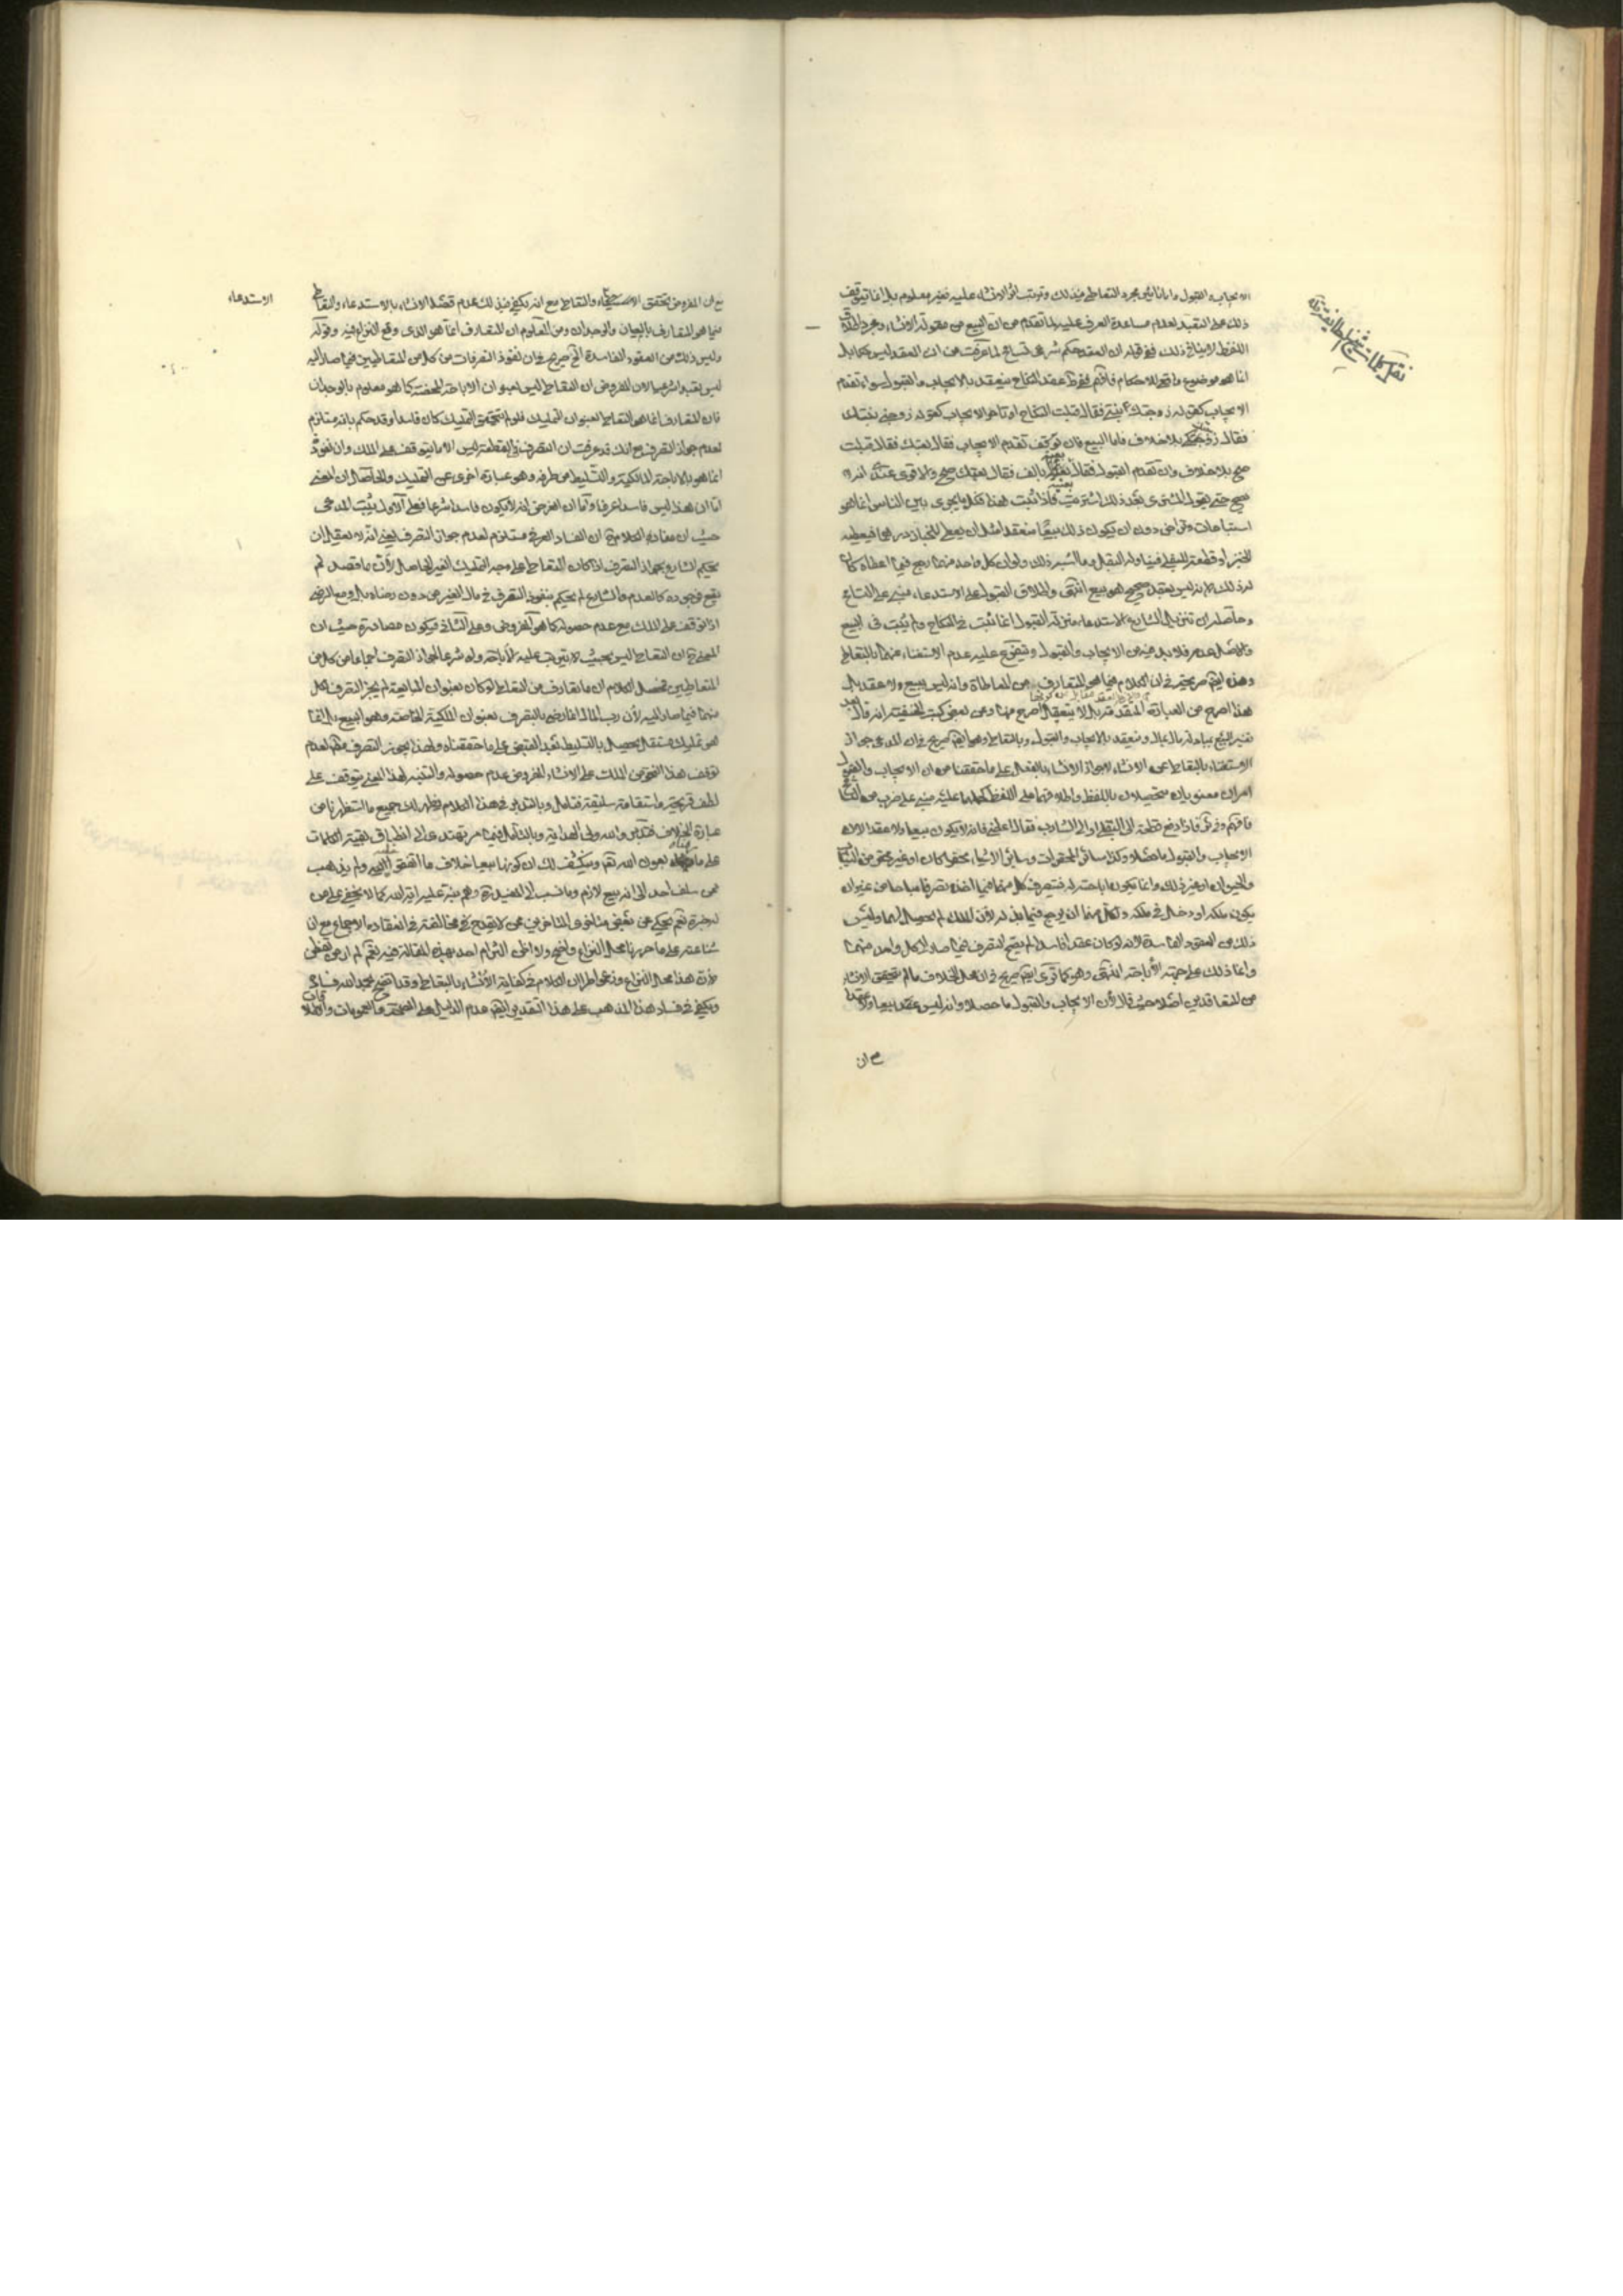 نقل كلمات شيخ الطايفة
الايجاب والقبول واما تاثير مجرد التعاطي في ذلك وترتب اثر الانشاء عليه فغير معلوم بل انما يتوقف
ذلك على التعبد لعدم مساعدة العرف عليه لما تقدم من ان البيع من مقولة الانشاء ومجرد اطلاق
اللفظ لا ينافي ذلك ففي قوله ان العقد حكم شرعي تسامح لما عرفت من ان العقد ليس حكما بل
انما هو موضوع واقع للاحكام فافهم عقد النكاح ينعقد بالايجاب والقبول سواء تقدم
الايجاب كقوله زوجتك بنتي فقال قبلت النكاح او تاخر الايجاب كقوله زوجني بنتك
فقال زوجتكها بلا خلاف فاما البيع فان تقدم الايجاب فقال بعتك فقال قبلت
صح بلا خلاف وان تقدم القبول فقال بعنيه بالف فقال بعتك صح والاقوى عندي انه لا
يصح حتى يقول المشتري بعد ذلك اشتريت فاذا ثبت هذا فكل ما يجري بين الناس انما هو
استباحات وتراض دون ان يكون ذلك بيعا منعقدا مثل ان يعطي للخباز درهما فيعطيه
الخبز او قطعة للبقلي فيناوله البقل وما اشبه ذلك ولو ان كل واحد منهما رجع فيما اعطاه كان
له ذلك لانه ليس بعقد صحيح هو بيع انتهى واطلاق القبول على الاستدعاء مبني على التسامح
وحاصله ان تنزيل الشارع الاستدعاء منزلة القبول انما ثبت في النكاح ولم يثبت في البيع
والاصل عدمه فلا بد فيه من الايجاب والقبول ويتفرع عليه عدم الاستغناء عنهما بالتعاطي
وهذه ايضا صريحة في ان الكلام فيما هو المتعارف من المعاطاة وانه ليس ببيع ولا عقد بل
هذا اصرح من العبارة المتقدمة بل لا يتعقل اصرح منها وعن بعض كتب الحنفية انه قال بعد
تفسير البيع بمبادلة مال بمال وينعقد بالايجاب والقبول وبالتعاطي وهو ايضا صريح في ان المدعى جواز
الاستغناء بالتعاطي عن الانشاء لا جواز الانشاء بالفعل على ما حققنا من ان الايجاب والقبول
امران معنويان متحصلان باللفظ واطلاقهما على اللفظ كحملهما عليه مبني على ضرب من التسامح
فافهم فاذا دفع قطعة الى البقلي او الى الشارب فقال اعطني فانه لا يكون بيعا ولا عقدا لان
الايجاب والقبول ما حصلا وكذا سائر المحقرات وسائر الاشياء محقرا كان او غير محقر من الثياب
والحيوان او غير ذلك وانما يكون اباحة له فيتصرف كل منهما فيما اخذه تصرفا مباحا من غير ان
يكون ملكه او دخل في ملكه ولكل منهما ان يرجع فيما بذله لان الملك لم يحصل لهما وليس
ذلك من العقود الفاسدة لانه لو كان عقدا فاسدا لم يصح التصرف فيما صار الى كل واحد منهما
وانما ذلك على جهة الاباحة انتهى وهو كما ترى ايضا صريح في ان محل الخلاف ما لم يتحقق الانشاء
من المتعاقدين اصلا حيث قال لان الايجاب والقبول ما حصلا وانه ليس عقدا بيعا ولا عقدا
مع ان
الاستدعاء
مع ان المفروض تحقق الاستدعاء والتعاطي مع انه يكفي في ذلك عدم قصد الانشاء بالاستدعاء والتعاطي
فيما هو المتعارف بالعيان والوجدان ومن المعلوم ان المتعارف انما هو الذي وقع النزاع فيه وقوله
وليس ذلك من العقود الفاسدة الخ صريح في ان نفوذ التصرفات من كل من المتعاطيين فيما صار اليه
ليس تعبدا شرعيا لان المفروض ان التعاطي ليس بعنوان الاباحة المحضة كما هو معلوم بالوجدان
فان المتعارف انما هو التعاطي بعنوان التمليك فلو لم يتحقق التمليك كان فاسدا وقد حكم بانه مستلزم
لعدم جواز التصرف مع انك قد عرفت ان التصرف في ليس الا ما يتوقف على الملك وان نفوذه
انما هو بالاباحة المالكية والتسليط من طرفه وهو عبارة اخرى عن التمليك والحاصل ان المعنى
اما ان هذا ليس فاسدا عرفا واما ان الغرض انه لا يكون فاسدا شرعا فعلى الاول يثبت المدعى
حيث ان مفاد الكلام ان الفساد العرفي مستلزم لعدم جواز التصرف يعني انه لا يعقل ان
يحكم الشارع بجواز التصرف اذا كان التعاطي على وجه التمليك الغير الحاصل لان ما قصد لم
يقع فوجوده كالعدم والشارع لم يحكم بنفوذ التصرف في مال الغير من دون رضاه بل ومع الرضى
اذا توقف على الملك مع عدم حصوله كما هو المفروض وعلى الثاني فيكون مصادرة حيث ان
المعنى ان التعاطي ليس بحيث لا يترتب عليه الاباحة ولو شرعا لجواز التصرف اجماعا من كل من
المتعاطيين فحصل الكلام ان ما يتعارف من التعاطي لو كان بعنوان المبايعة لم يجز التصرف لكل
منهما فيما صار اليه لان رب المال انما رضي بالتصرف بعنوان الملكية الخاصة وهو البيع بل انما
هو تمليك مستقل يحصل بالتسليط بعد القبض على ما حققناه ولهذا يجوز التصرف منهم لعدم
توقف هذا النحو من الملك على الانشاء المفروض عدم حصوله والتنبه لهذا المعنى يتوقف على
لطف قريحة واستقامة سليقة فتامل وبالتدبر في هذا الكلام يظهر لك جميع ما استظهرنا من
عبارة الخلاف فتدبر والله ولي الهداية وبالتأمل فيما مر يهتدى الى انطباق بقية الكلمات
على ما بعون الله تعالى وينكشف لك ان كونها بيعا خلاف ما اتفقوا عليه ولم يذهب
ممن سلف احد الى انه بيع لازم وما نسب الى المفيد فرية عليه كما لا يخفى على من
له خبرة نعم يحكى عن بعض متاخري المتاخرين ممن لا يقدح مخالفته في انعقاد الاجماع مع ان
شناعته على ما حررنا محل النزاع واضح ولا اظن التزام احد بهذه المقالة فيه نعم لم ار من تفطن
لان هذا محل النزاع وزعموا طرا ان الكلام في كفاية الانشاء بالتعاطي وقد اتضح بحمد الله فساده
ويكفي في فساد هذا المذهب على هذا التقدير ايضا عدم الدليل على الصحة والعمومات واطلاقات